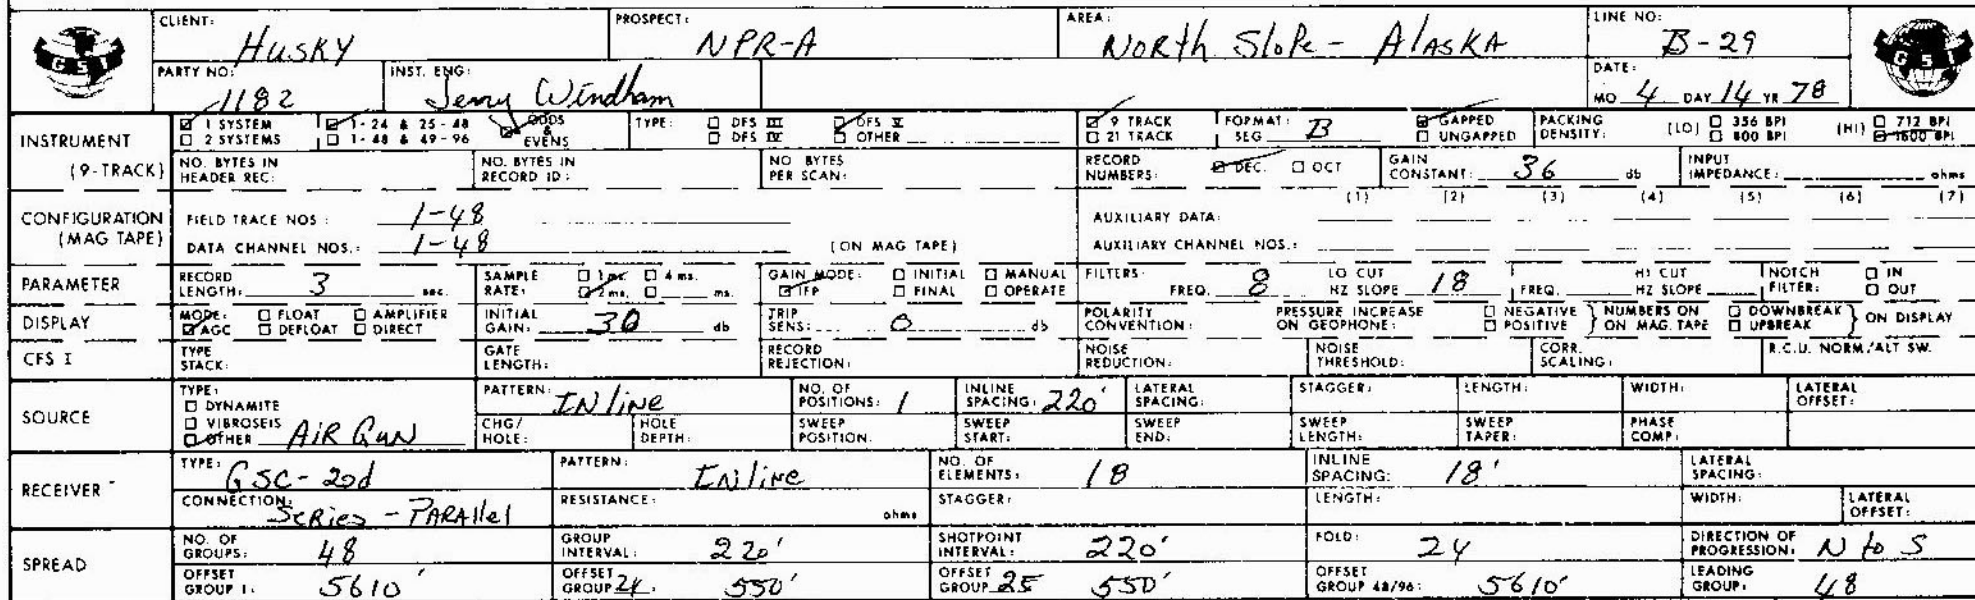 CLIENT: HUSKY PROSPECT: NPR-A AREA: NORTH SLOPE - ALASKA LINE NO: B-29
GSI GSI
PARTY NO: 1182 INST. ENG: Jerry Windham DATE: MO 4 DAY 14 YR 78
INSTRUMENT (9-TRACK) ☑ 1 SYSTEM ☑ 1-24 & 25-48 ☑ ODDS & EVENS TYPE: ☐ DFS III ☑ DFS V ☑ 9 TRACK FORMAT: SEG B ☑ GAPPED PACKING DENSITY: (LO) ☐ 356 BPI (HI) ☐ 712 BPI
☐ 2 SYSTEMS ☐ 1-48 & 49-96 ☐ DFS IV ☐ OTHER ☐ 21 TRACK ☐ UNGAPPED ☐ 800 BPI ☑ 1600 BPI
NO. BYTES IN HEADER REC: NO. BYTES IN RECORD ID: NO BYTES PER SCAN: RECORD NUMBERS: ☑ DEC. ☐ OCT GAIN CONSTANT: 36 db INPUT IMPEDANCE: ohms
CONFIGURATION (MAG TAPE) FIELD TRACE NOS: 1-48 AUXILIARY DATA: (1) (2) (3) (4) (5) (6) (7)
DATA CHANNEL NOS.: 1-48 (ON MAG TAPE) AUXILIARY CHANNEL NOS.:
PARAMETER RECORD LENGTH: 3 sec. SAMPLE RATE: ☐ 1 ms. ☐ 4 ms. ☑ 2 ms. ☐ ms. GAIN MODE: ☑ IFP ☐ INITIAL ☐ FINAL ☐ MANUAL ☐ OPERATE FILTERS: FREQ. 8 LO CUT HZ SLOPE 18 FREQ. HI CUT HZ SLOPE NOTCH FILTER: ☐ IN ☐ OUT
DISPLAY MODE: ☑ AGC ☐ FLOAT ☐ DEFLOAT ☐ AMPLIFIER ☐ DIRECT INITIAL GAIN: 30 db TRIP SENS: 0 db POLARITY CONVENTION: PRESSURE INCREASE ON GEOPHONE: ☐ NEGATIVE ☐ POSITIVE } NUMBERS ON ON MAG. TAPE ☐ DOWNBREAK ☐ UPBREAK } ON DISPLAY
CFS I TYPE STACK: GATE LENGTH: RECORD REJECTION: NOISE REDUCTION: NOISE THRESHOLD: CORR. SCALING: R.C.U. NORM/ALT SW.
SOURCE TYPE: ☐ DYNAMITE ☐ VIBROSEIS ☑ OTHER AIR GUN PATTERN: INline NO. OF POSITIONS: 1 INLINE SPACING: 220' LATERAL SPACING: STAGGER: LENGTH: WIDTH: LATERAL OFFSET:
CHG/HOLE: HOLE DEPTH: SWEEP POSITION. SWEEP START: SWEEP END: SWEEP LENGTH: SWEEP TAPER: PHASE COMP:
RECEIVER TYPE: GSC-20d PATTERN: INline NO. OF ELEMENTS: 18 INLINE SPACING: 18' LATERAL SPACING:
CONNECTION: Series - PARAllel RESISTANCE: ohms STAGGER: LENGTH: WIDTH: LATERAL OFFSET:
SPREAD NO. OF GROUPS: 48 GROUP INTERVAL: 220' SHOTPOINT INTERVAL: 220' FOLD: 24 DIRECTION OF PROGRESSION: N to S
OFFSET GROUP 1: 5610' OFFSET GROUP 24: 550' OFFSET GROUP 25 550' OFFSET GROUP 48/96: 5610' LEADING GROUP: 48